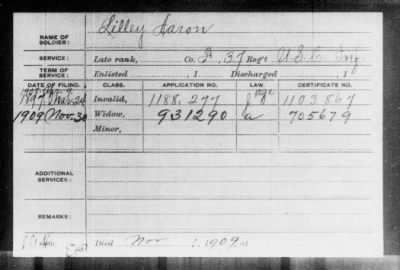 NAME OF SOLDIER: Lilley Aaron
SERVICE: Late rank, Co. D, 37 Reg't U.S.C. Inf.
TERM OF SERVICE: Enlisted , 1 Discharged , 1
DATE OF FILING. CLASS. APPLICATION NO. LAW CERTIFICATE NO.
1897 Mar 24 Invalid, 1188.277 age 1103.867
1909 Nov. 30 Widow, 931290 a 705679
Minor,
ADDITIONAL SERVICES:
REMARKS:
Died Nov , 1909, at